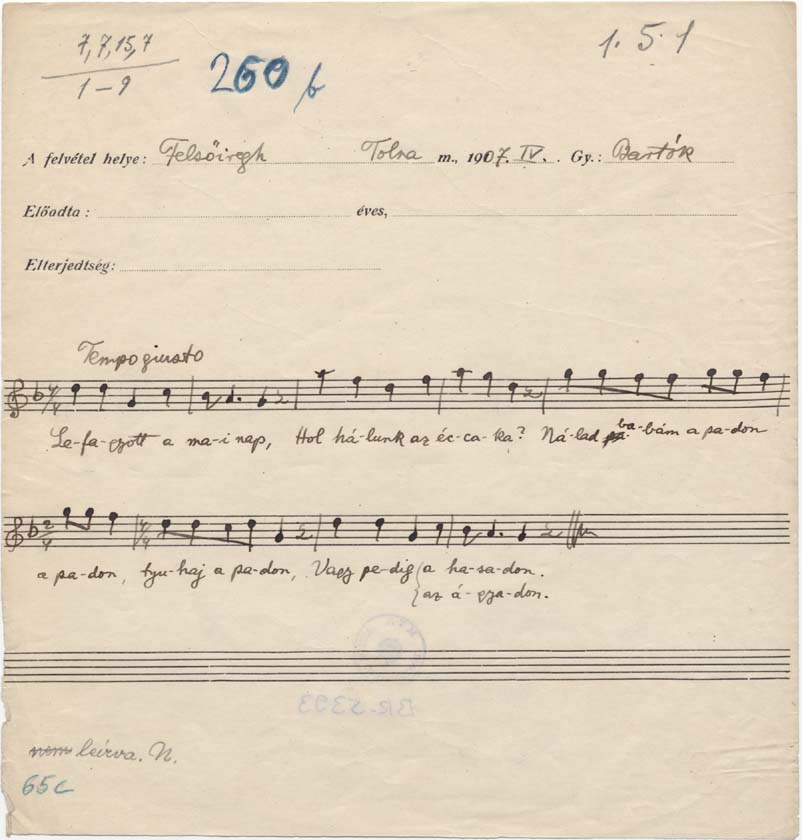 7, 7, 15, 7
1–9
260 b
1. 5. 1
A felvétel helye: Felsőiregh Tolna m., 1907. IV. Gy.: Bartók
Előadta: éves,
Elterjedtség:
Tempo giusto
Le-fa-gyott a ma-i nap, Hol há-lunk az éc-ca-ka? Ná-lad ba-bám a pa-don
a pa-don, tyu-haj a pa-don, Vagy pe-dig a ha-sa-don.
az á-gya-don.
BR-5393
nem leírva. N.
65c